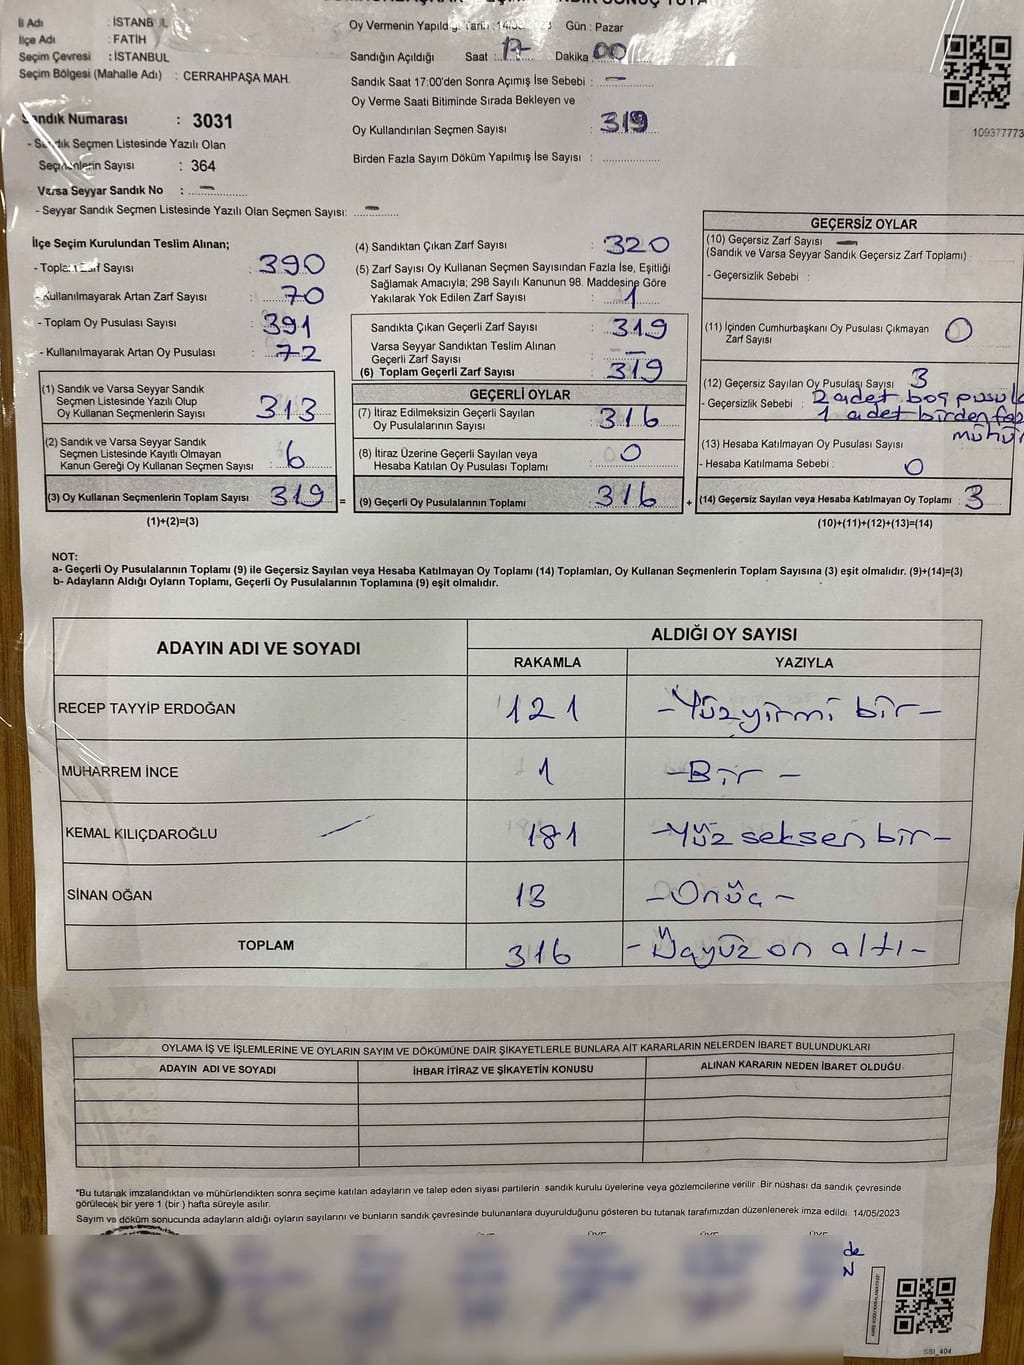 İl Adı : İSTANBUL
İlçe Adı : FATİH
Seçim Çevresi : İSTANBUL
Seçim Bölgesi (Mahalle Adı) : CERRAHPAŞA MAH.
Sandık Numarası : 3031
- Sandık Seçmen Listesinde Yazılı Olan
Seçmenlerin Sayısı : 364
Varsa Seyyar Sandık No : —
- Seyyar Sandık Seçmen Listesinde Yazılı Olan Seçmen Sayısı: —
Oy Vermenin Yapıldığı Tarih : 14/05/2023 Gün : Pazar
Sandığın Açıldığı Saat : 17 Dakika 00
Sandık Saat 17:00'den Sonra Açımış İse Sebebi : —
Oy Verme Saati Bitiminde Sırada Bekleyen ve
Oy Kullandırılan Seçmen Sayısı : 319
Birden Fazla Sayım Döküm Yapılmış İse Sayısı :
109377773
İlçe Seçim Kurulundan Teslim Alınan;
- Toplam Zarf Sayısı : 390
- Kullanılmayarak Artan Zarf Sayısı : 70
- Toplam Oy Pusulası Sayısı : 391
- Kullanılmayarak Artan Oy Pusulası : 72
(1) Sandık ve Varsa Seyyar Sandık
Seçmen Listesinde Yazılı Olup
Oy Kullanan Seçmenlerin Sayısı : 313
(2) Sandık ve Varsa Seyyar Sandık
Seçmen Listesinde Kayıtlı Olmayan
Kanun Gereği Oy Kullanan Seçmen Sayısı : 6
(3) Oy Kullanan Seçmenlerin Toplam Sayısı 319 =
(1)+(2)=(3)
(4) Sandıktan Çıkan Zarf Sayısı : 320
(5) Zarf Sayısı Oy Kullanan Seçmen Sayısından Fazla İse, Eşitliği
Sağlamak Amacıyla; 298 Sayılı Kanunun 98. Maddesine Göre
Yakılarak Yok Edilen Zarf Sayısı : 1
Sandıkta Çıkan Geçerli Zarf Sayısı : 319
Varsa Seyyar Sandıktan Teslim Alınan
Geçerli Zarf Sayısı : —
(6) Toplam Geçerli Zarf Sayısı : 319
GEÇERLİ OYLAR
(7) İtiraz Edilmeksizin Geçerli Sayılan
Oy Pusulalarının Sayısı : 316
(8) İtiraz Üzerine Geçerli Sayılan veya
Hesaba Katılan Oy Pusulası Toplamı : 0
(9) Geçerli Oy Pusulalarının Toplamı : 316 +
GEÇERSİZ OYLAR
(10) Geçersiz Zarf Sayısı —
(Sandık ve Varsa Seyyar Sandık Geçersiz Zarf Toplamı)
- Geçersizlik Sebebi :
(11) İçinden Cumhurbaşkanı Oy Pusulası Çıkmayan
Zarf Sayısı 0
(12) Geçersiz Sayılan Oy Pusulası Sayısı 3
- Geçersizlik Sebebi : 2 adet boş pusula
1 adet birden faz
mühür
(13) Hesaba Katılmayan Oy Pusulası Sayısı
- Hesaba Katılmama Sebebi : 0
(14) Geçersiz Sayılan veya Hesaba Katılmayan Oy Toplamı 3
(10)+(11)+(12)+(13)=(14)
NOT:
a- Geçerli Oy Pusulalarının Toplamı (9) ile Geçersiz Sayılan veya Hesaba Katılmayan Oy Toplamı (14) Toplamları, Oy Kullanan Seçmenlerin Toplam Sayısına (3) eşit olmalıdır. (9)+(14)=(3)
b- Adayların Aldığı Oyların Toplamı, Geçerli Oy Pusulalarının Toplamına (9) eşit olmalıdır.
ADAYIN ADI VE SOYADI ALDIĞI OY SAYISI
RAKAMLA YAZIYLA
RECEP TAYYİP ERDOĞAN 121 -Yüzyirmi bir-
MUHARREM İNCE 1 -Bir-
KEMAL KILIÇDAROĞLU 181 -Yüz seksen bir-
SİNAN OĞAN 13 -Onüç-
TOPLAM 316 -Üçyüz on altı-
OYLAMA İŞ VE İŞLEMLERİNE VE OYLARIN SAYIM VE DÖKÜMÜNE DAİR ŞİKAYETLERLE BUNLARA AİT KARARLARIN NELERDEN İBARET BULUNDUKLARI
ADAYIN ADI VE SOYADI İHBAR İTİRAZ VE ŞİKAYETİN KONUSU ALINAN KARARIN NEDEN İBARET OLDUĞU
*Bu tutanak imzalandıktan ve mühürlendikten sonra seçime katılan adayların ve talep eden siyasi partilerin sandık kurulu üyelerine veya gözlemcilerine verilir. Bir nüshası da sandık çevresinde
görülecek bir yere 1 (bir) hafta süreyle asılır.
Sayım ve döküm sonucunda adayların aldığı oyların sayılarını ve bunların sandık çevresinde bulunanlara duyurulduğunu gösteren bu tutanak tarafımızdan düzenlenerek imza edildi. 14/05/2023
de
N
SSI_404